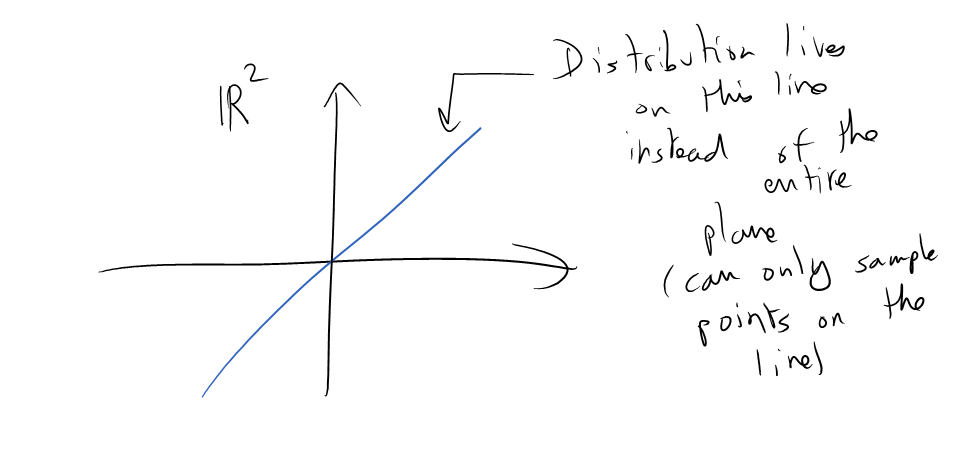 ℝ²
Distribution lives
on this line
instead of the
entire
plane
(can only sample
points on the
line)